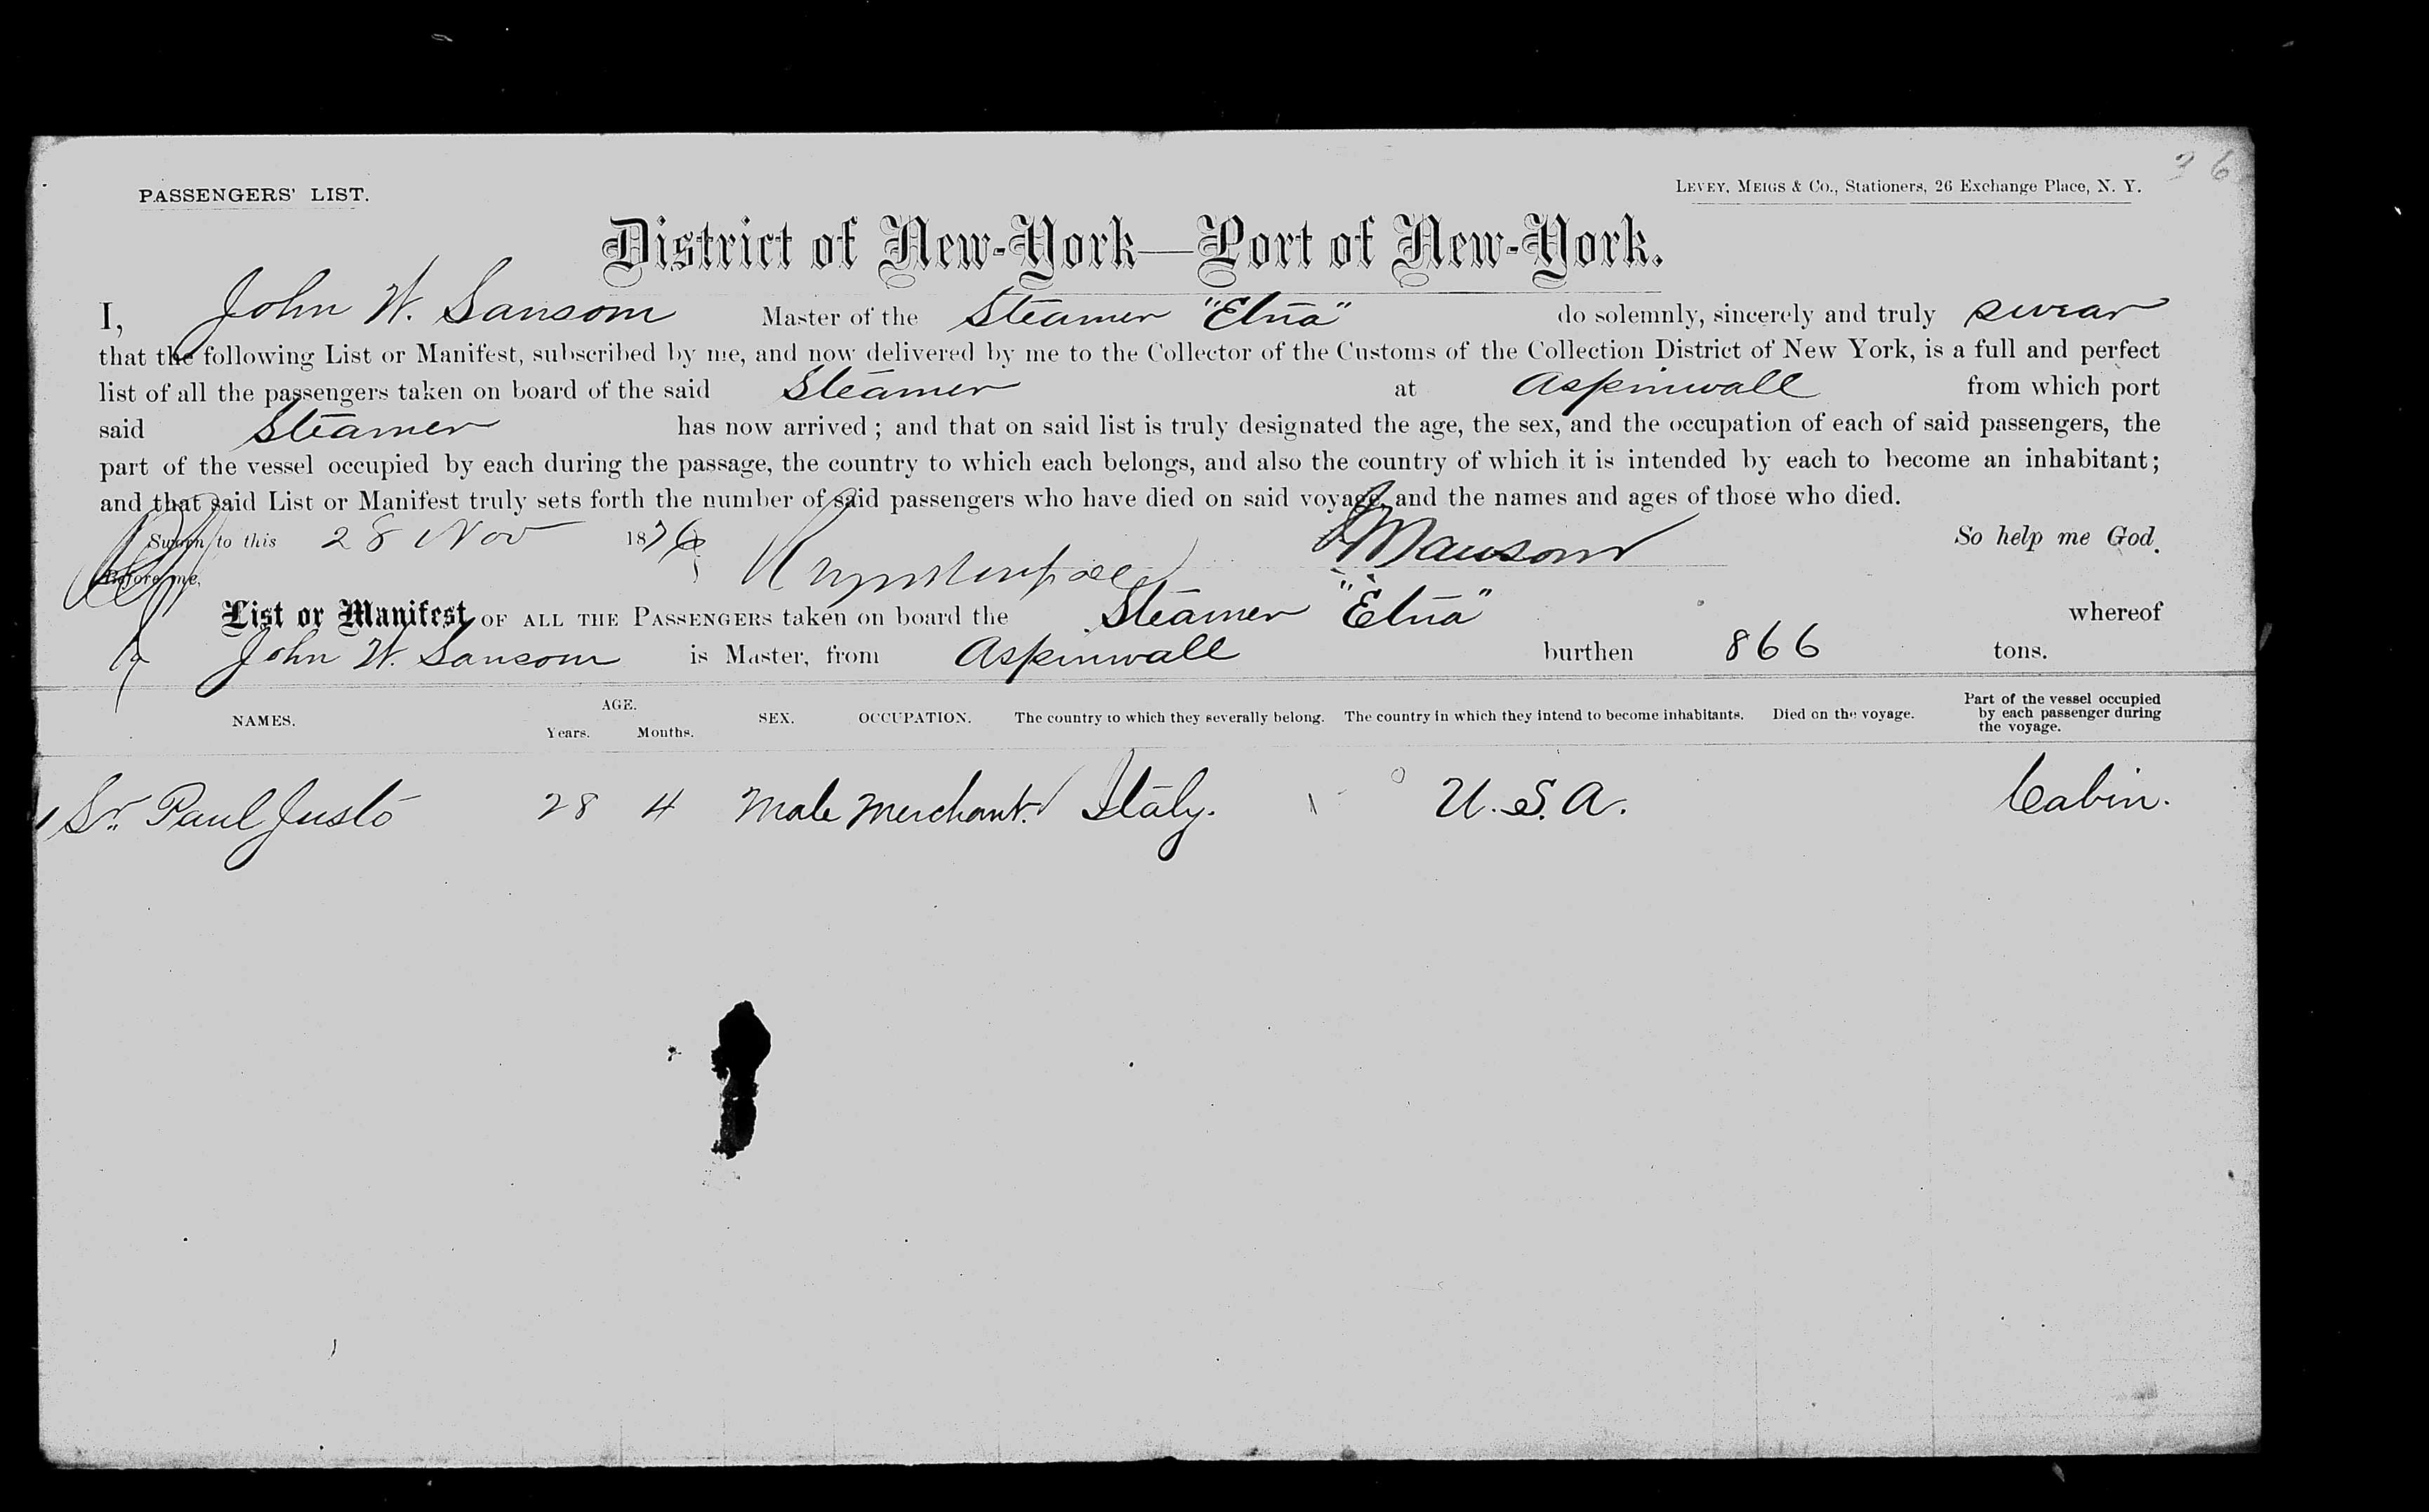 36
PASSENGERS' LIST.
LEVEY, MEIGS & Co., Stationers, 26 Exchange Place, N. Y.
District of New-York—Port of New-York.
I, John W. Sansom Master of the Steamer "Etna" do solemnly, sincerely and truly swear
that the following List or Manifest, subscribed by me, and now delivered by me to the Collector of the Customs of the Collection District of New York, is a full and perfect
list of all the passengers taken on board of the said Steamer at Aspinwall from which port
said Steamer has now arrived; and that on said list is truly designated the age, the sex, and the occupation of each of said passengers, the
part of the vessel occupied by each during the passage, the country to which each belongs, and also the country of which it is intended by each to become an inhabitant;
and that said List or Manifest truly sets forth the number of said passengers who have died on said voyage, and the names and ages of those who died.
Sworn to this 28 Nov 1876 So help me God.
Before me,
List or Manifest OF ALL THE PASSENGERS taken on board the Steamer "Etna" whereof
John W. Sansom is Master, from Aspinwall burthen 866 tons.
NAMES. AGE. Years. Months. SEX. OCCUPATION. The country to which they severally belong. The country in which they intend to become inhabitants. Died on the voyage. Part of the vessel occupied by each passenger during the voyage.
1 Sr. Paul Justo 28 4 Male Merchant. Italy. U.S.A. Cabin.